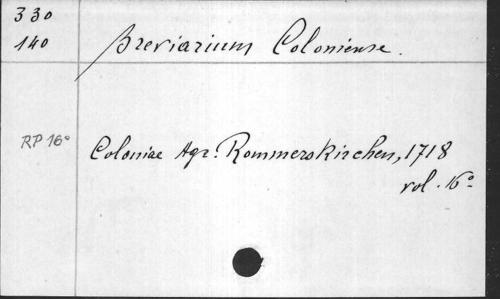 330
140
Breviarium Coloniense.
RP 16°
Coloniae Agr. Rommerskirchen, 1718
vol. 16°